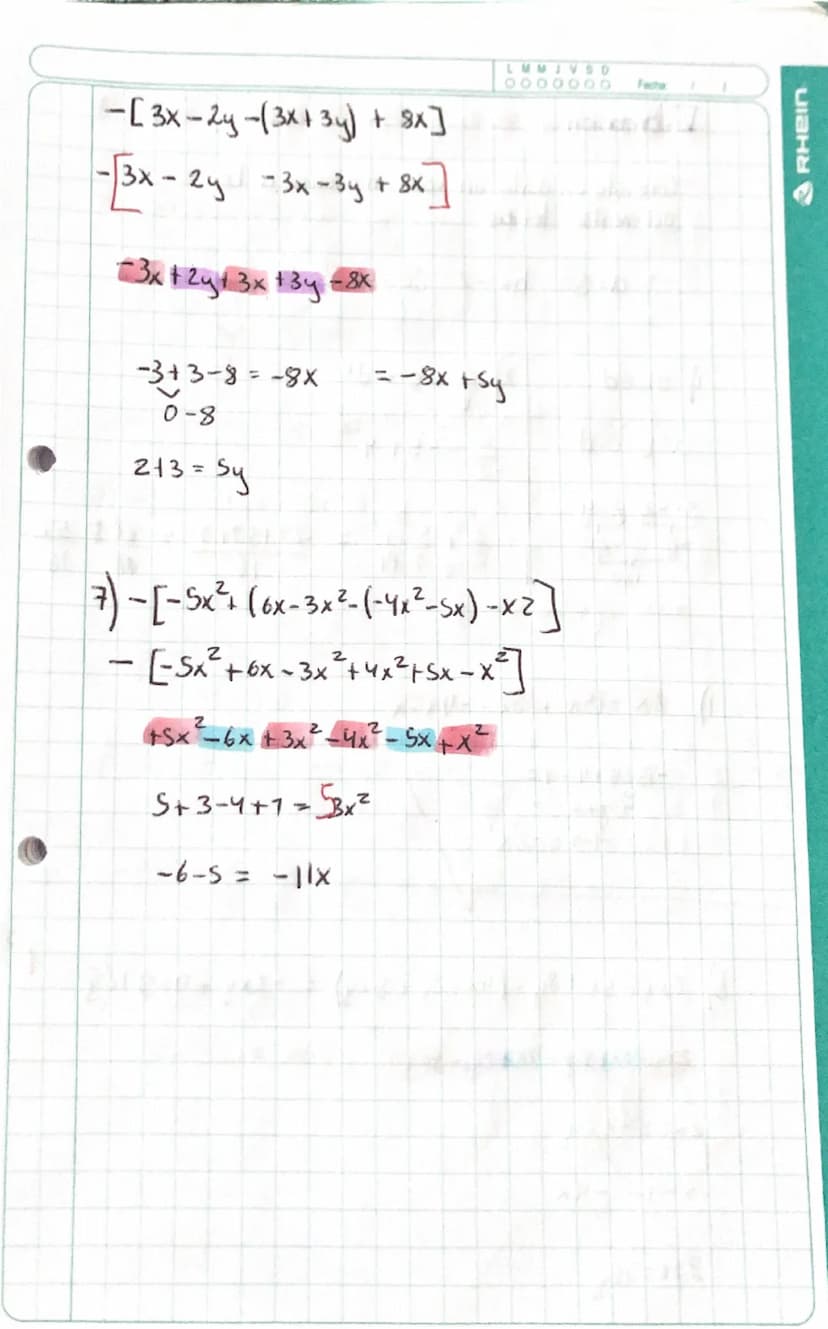 L M M J V S D
Fecha: / /
RHEIN
-[3x-2y-(3x+3y) + 8x]
-[3x - 2y -3x-3y + 8x]
-3x+2y+3x+3y-8x
-3+3-8 = -8x = -8x +5y
0-8
2+3 = 5y
7) -[-5x²+(6x-3x²-(-4x²-5x)-x2]
- [-5x²+6x-3x²+4x²+5x-x²]
+5x²-6x+3x²-4x²-5x+x²
5+3-4+1= 5x²
-6-5 = -11x